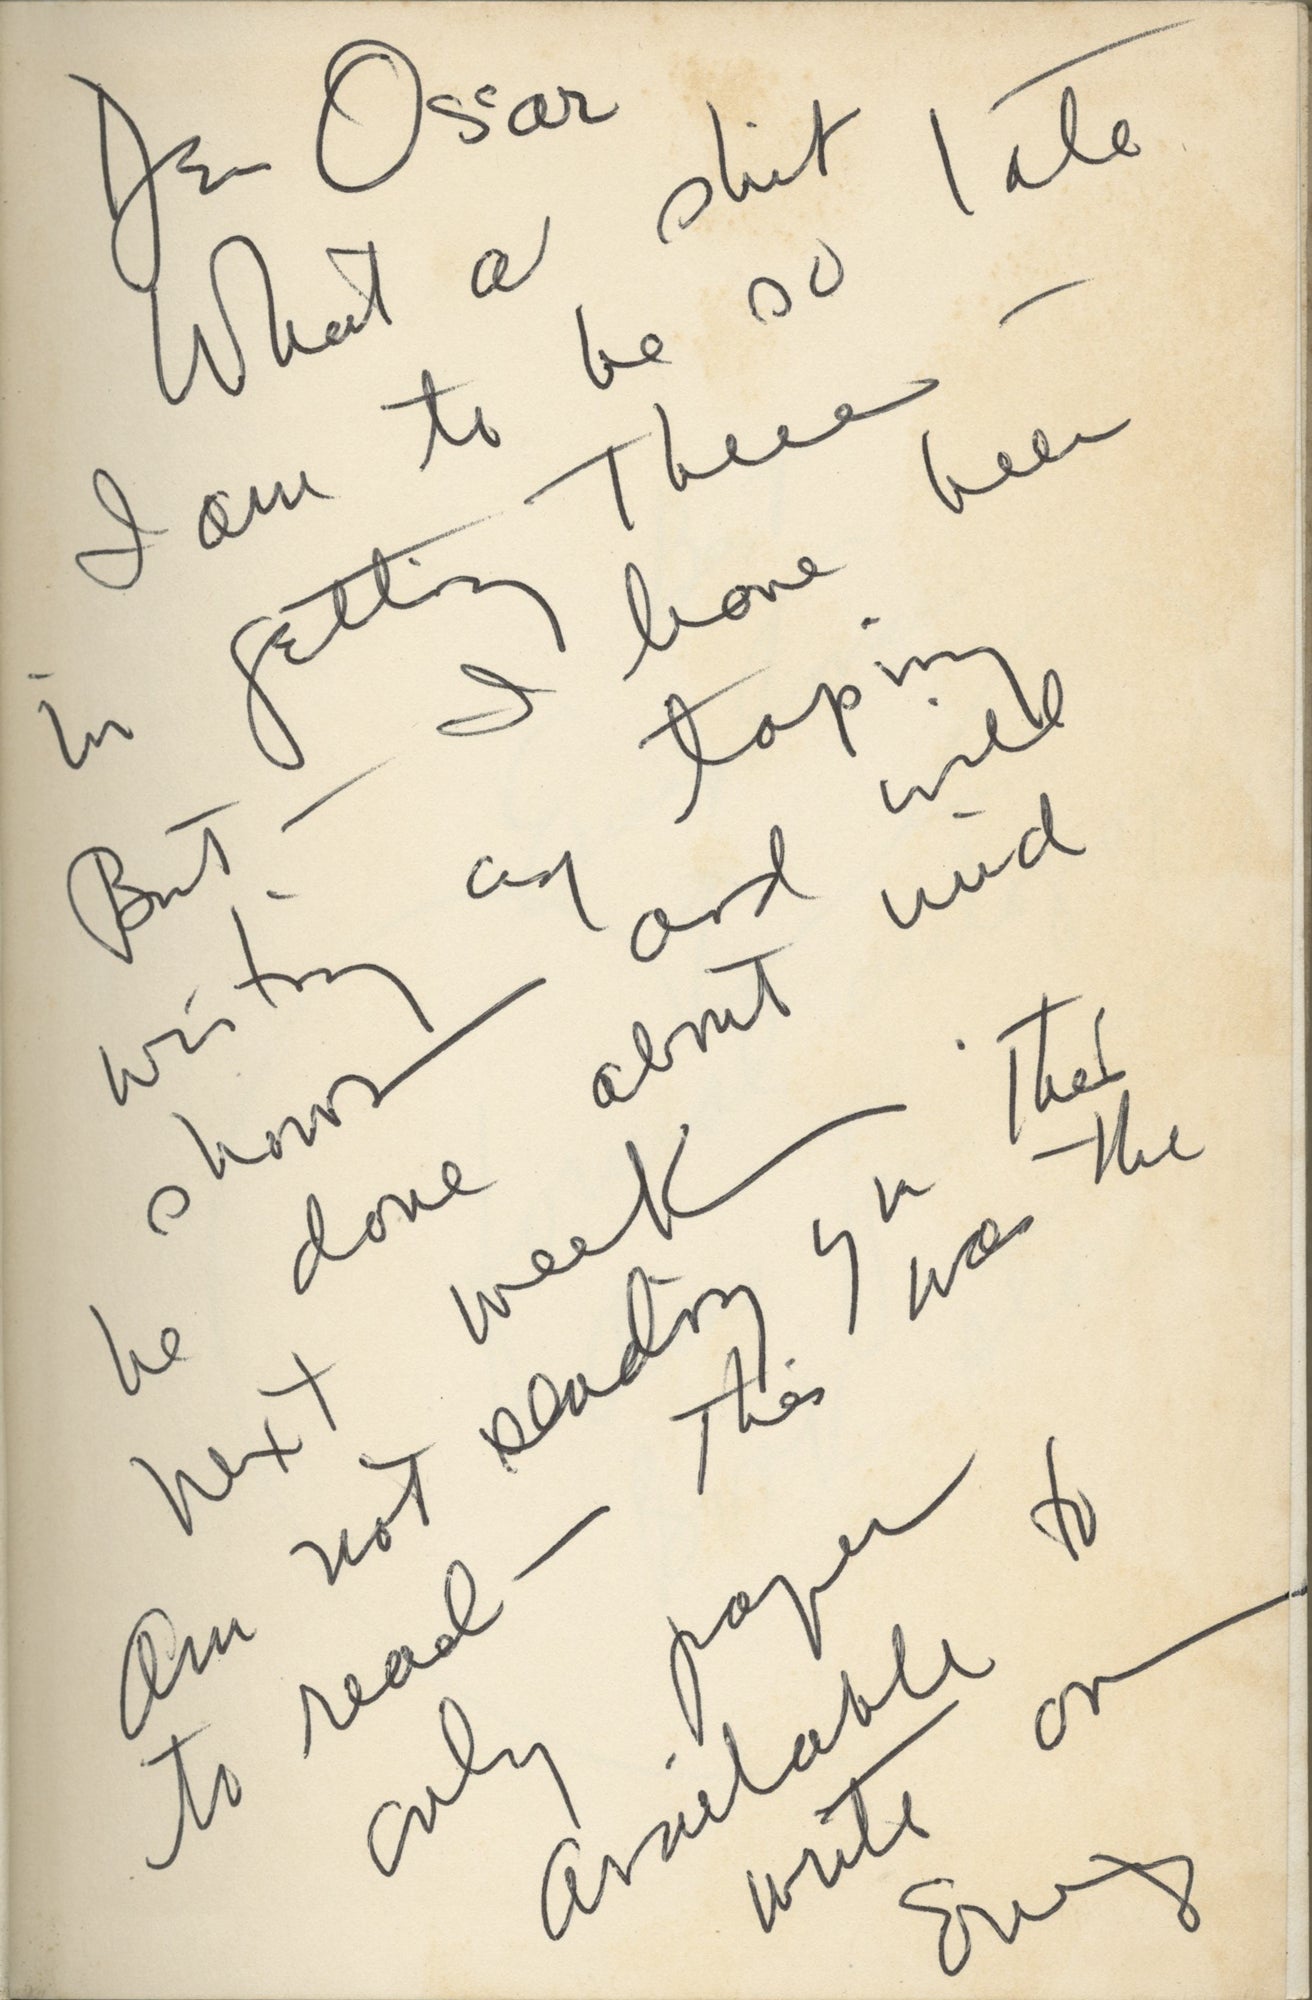 Dear Oscar
What a shit
I am to be so late
in getting there –
But – I have been
writing and taping
shows – and will
be done about mid
next week –
Am not sending you this
to read – This was the
only paper
available to
write on –